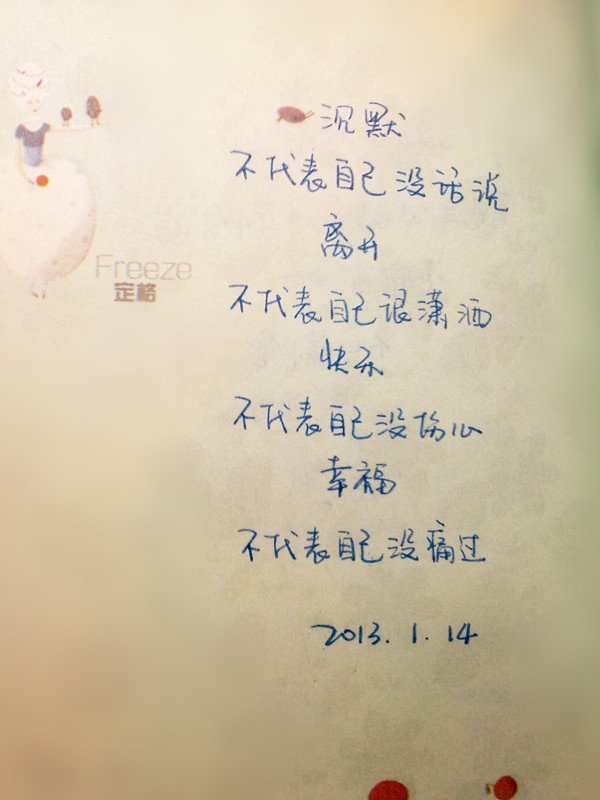 沉默
不代表自己没话说
离开
Freeze
定格
不代表自己很潇洒
快乐
不代表自己没伤心
幸福
不代表自己没痛过
2013.1.14